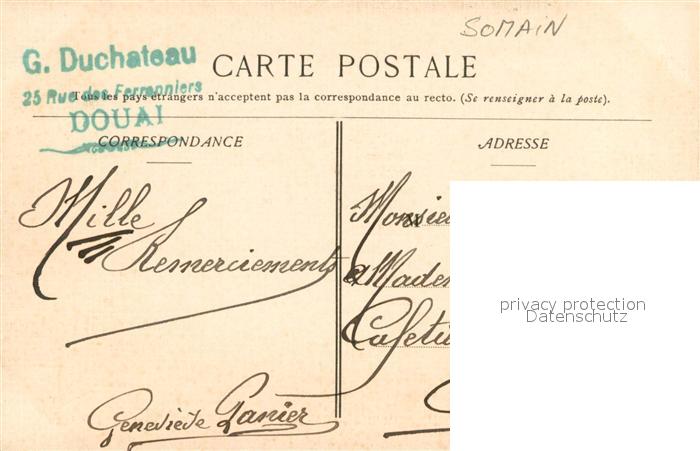 SOMAIN
G. Duchateau
25 Rue des Ferronniers
DOUAI
CARTE POSTALE
Tous les pays étrangers n'acceptent pas la correspondance au recto. (Se renseigner à la poste).
CORRESPONDANCE
ADRESSE
Mille
Remerciements
Geneviève Panier
Monsie
& Madem
Cafeti
privacy protection
Datenschutz